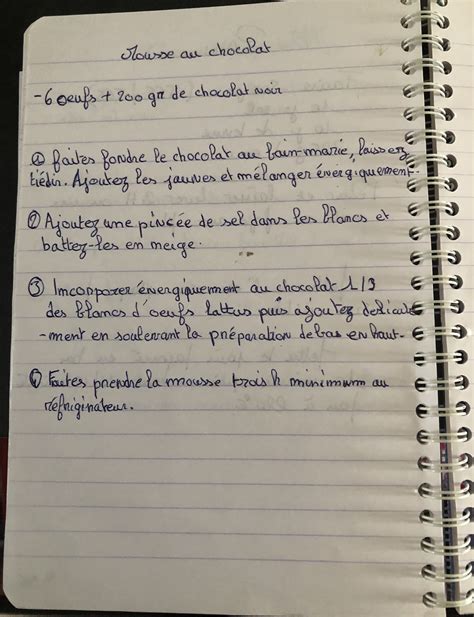 Mousse au chocolat
- 6 oeufs + 200 gr de chocolat noir
① faites fondre le chocolat au bain-marie, laissez
tiédir. Ajoutez les jaunes et mélanger énergiquement.
② Ajoutez une pincée de sel dans les blancs et
battez-les en neige.
③ Incorporer énergiquement au chocolat 1/3
des blancs d'oeufs battus puis ajoutez délicate
-ment en soulevant la préparation de bas en haut.
④ Faites prendre la mousse trois h minimum au
réfrigirateur.